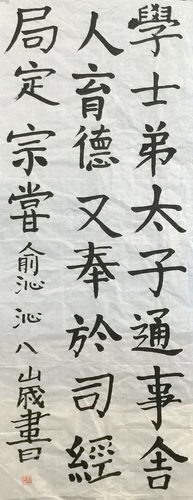 學士弟太子通事舍
人育德又奉於司經
局定宗嘗俞沁沁八歲書